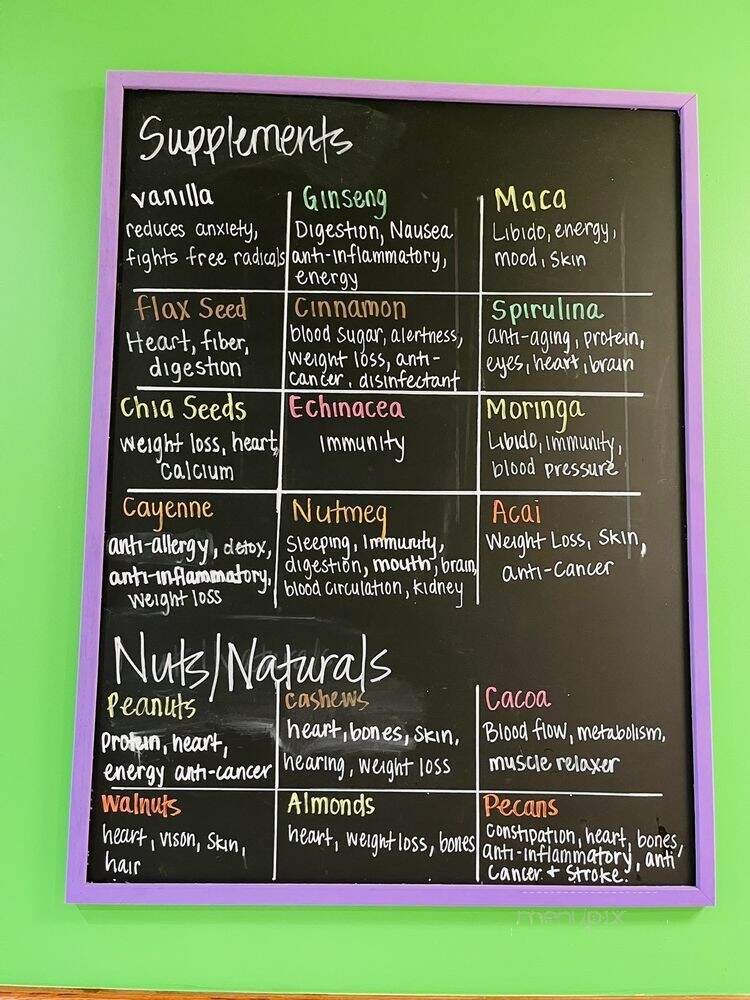 Supplements
vanilla
reduces anxiety,
fights free radicals
Ginseng
Digestion, Nausea
anti-inflammatory,
energy
Maca
Libido, energy,
mood, skin
flax Seed
Heart, fiber,
digestion
Cinnamon
blood sugar, alertness,
weight loss, anti-
cancer, disinfectant
Spirulina
anti-aging, protein,
eyes, heart, brain
Chia Seeds
weight loss, heart,
Calcium
Echinacea
Immunity
Moringa
Libido, immunity,
blood pressure
Cayenne
anti-allergy, detox,
anti-inflammatory,
weight loss
Nutmeg
Sleeping, Immunity,
digestion, mouth, brain,
blood circulation, kidney
Acai
Weight Loss, Skin,
anti-Cancer
Nuts/Naturals
Peanuts
protein, heart,
energy anti-cancer
cashews
heart, bones, skin,
hearing, weight loss
Cacoa
Blood flow, metabolism,
muscle relaxer
walnuts
heart, vison, skin,
hair
Almonds
heart, weight loss, bones
Pecans
Constipation, heart, bones,
anti-inflammatory, anti
Cancer + Stroke.
menupix